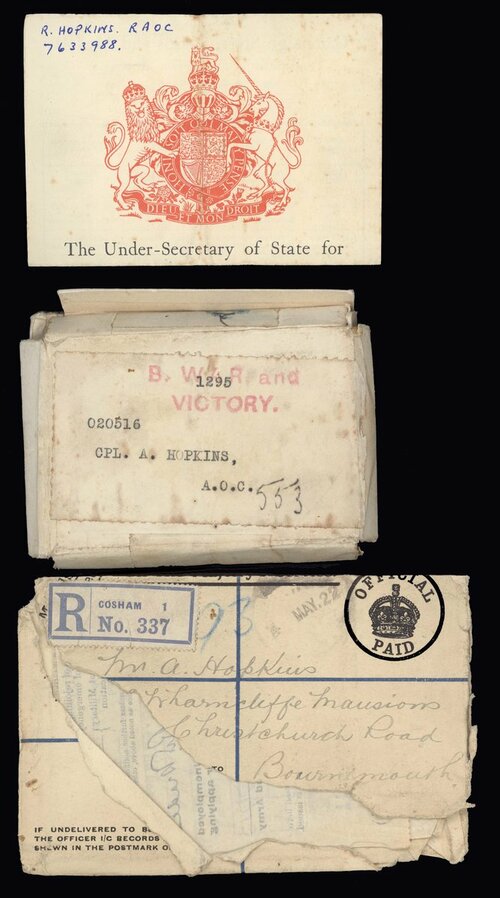 R. HOPKINS. RAOC
7633988.
HONI SOIT QUI MAL Y PENSE
DIEU ET MON DROIT
The Under-Secretary of State for
B. WAR and
1295
VICTORY.
020516
CPL. A. HOPKINS,
A.O.C.
553
R
COSHAM 1
No. 337
93
MAY. 22
OFFICIAL
PAID
Mr. A. Hopkins
Wharncliffe Mansions
Christchurch Road
Bournemouth
TO
applying
unemployed
IF UNDELIVERED TO B
THE OFFICER I/C RECORDS
SHEWN IN THE POSTMARK O